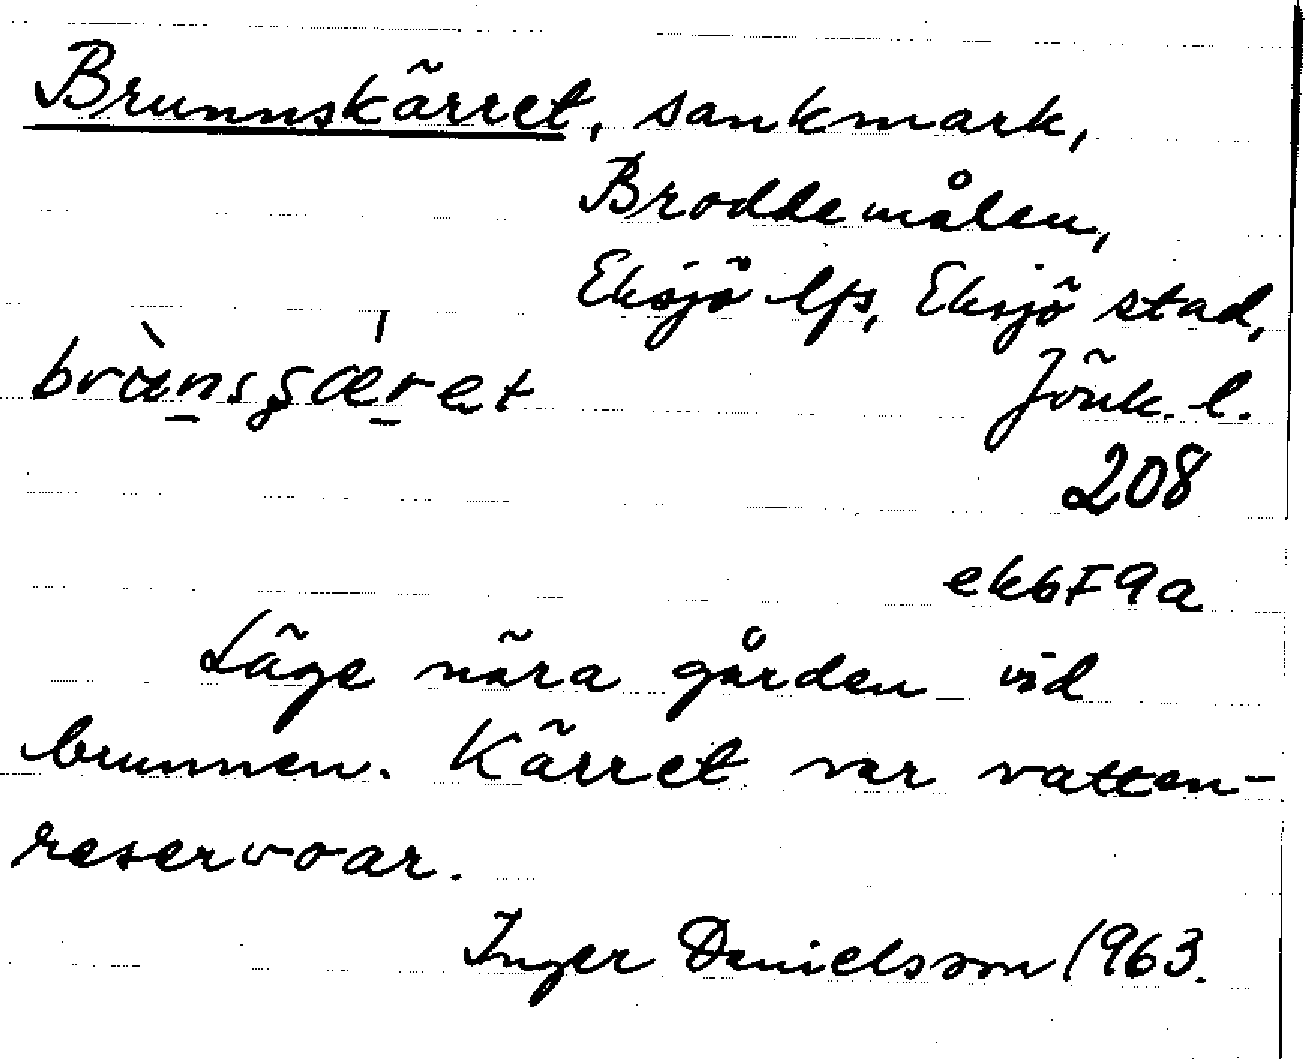 Brunnskärret, sankmark,
Broddemålen,
Eksjö lfs, Eksjö stad,
Jönk. l.
208
ek6F9a
Läge nära gården vid
brunnen. Kärret var vatten-
reservoar.
Inger Danielsson 1963.